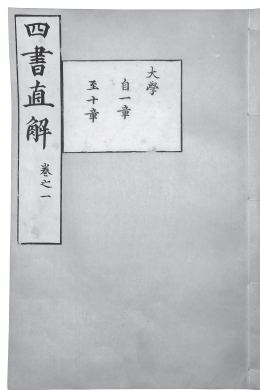 四書直解 卷之一
大學
自一章
至十章